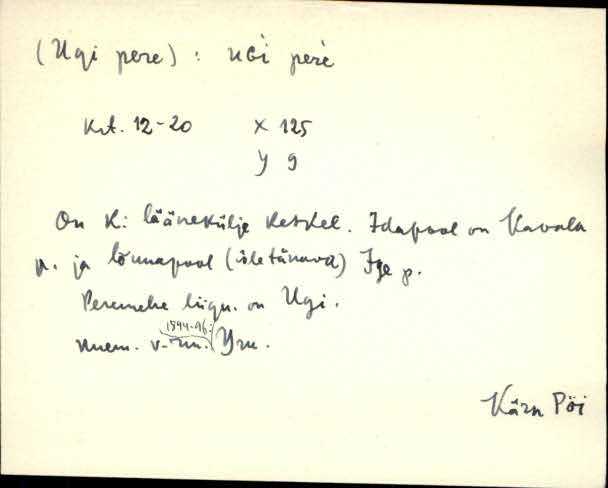 (Ugi pere) : uGì perè
Krt. 12-20 X 125
Y 9
On K: läänekülje keskel. Idapool on Kavala
p. ja lõunapool (üle tänava) Ige p.
Peremehe liign. on Ugi.
1894-96:
muem. v. rm. Yru.
Kärn Pöi